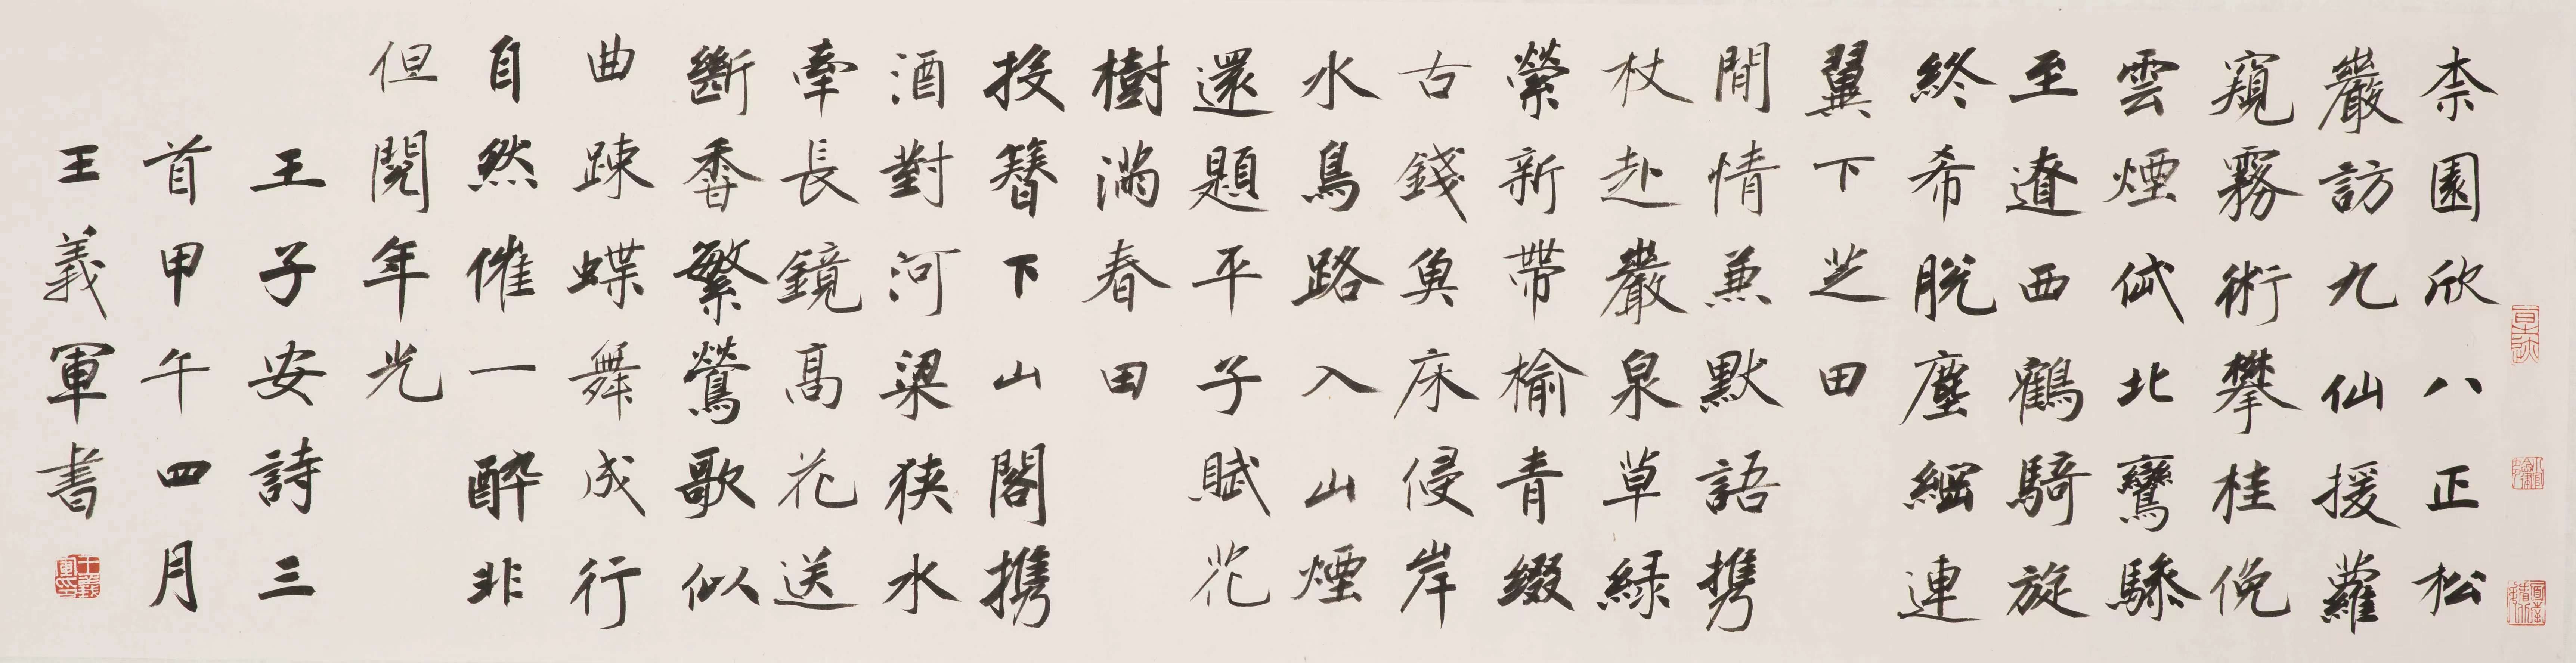 柰園欣八正松
巖訪九仙援蘿
窺霧術攀桂俛
雲煙岱北鸞驂
至遼西鶴騎旋
終希脫塵網連
翼下芝田
閒情兼默語携
杖赴巖泉草綠
縈新帶榆青綴
古錢魚床侵岸
水鳥路入山煙
還題平子賦花
樹滿春田
投簪下山閣携
酒對河梁狹水
牽長鏡高花送
斷香繁鶯歌似
曲踈蝶舞成行
自然催一醉非
但閱年光
王子安詩三
首甲午四月
王義軍書